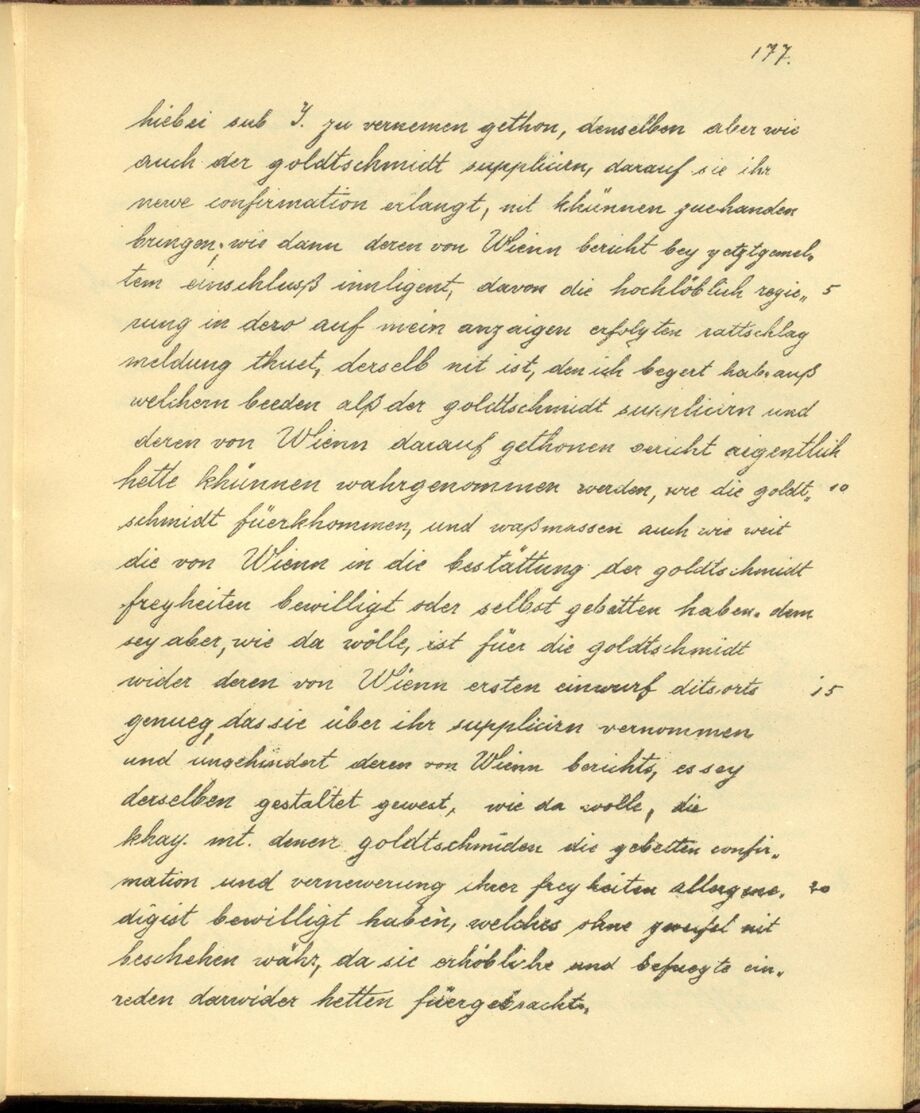 177.
hiebei sub Y. zu vernemen gethon, denselben aber wie
auch der goldtschmidt supplicirn, darauf sie ihr
newe confirmation erlangt, nit khünnen zuehanden
bringen, wie dann deren von Wienn bericht bey yetztgemel„
tem einschlusß innligent, davon die hochlöblich regie„ 5
rung in dero auf mein anzaigen erfolgten rattschlag
meldung thuet, derselb nit ist, den ich begert hab. auß
welchem beeden alß der goldtschmidt supplicirn und
deren von Wienn darauf gethonen bericht aigentlich
hette khünnen wahrgenommen werden, wie die goldt„ 10
schmidt füerkhommen, und waßmassen auch wie weit
die von Wienn in die bestättung der goldtschmidt
freyheiten bewilligt oder selbst gebetten haben. dem
sey aber, wie da wölle, ist für die goldtschmidt
wider deren von Wienn ersten einwurf ditsorts 15
genueg, das sie über ihr supplicirn vernommen
und ungehindert deren von Wienn berichts, es sey
derselben gestaltet gewest, wie da wolle, die
khay. mt. denen goldtschmiden die gebetten confir„
mation und vernewerung ihrer freyheiten allergne„ 20
digist bewilligt haben, welches ohne zweifel nit
beschehen währ, da sie erhöbliche und befuegte ein„
reden darwider hetten füergebracht.